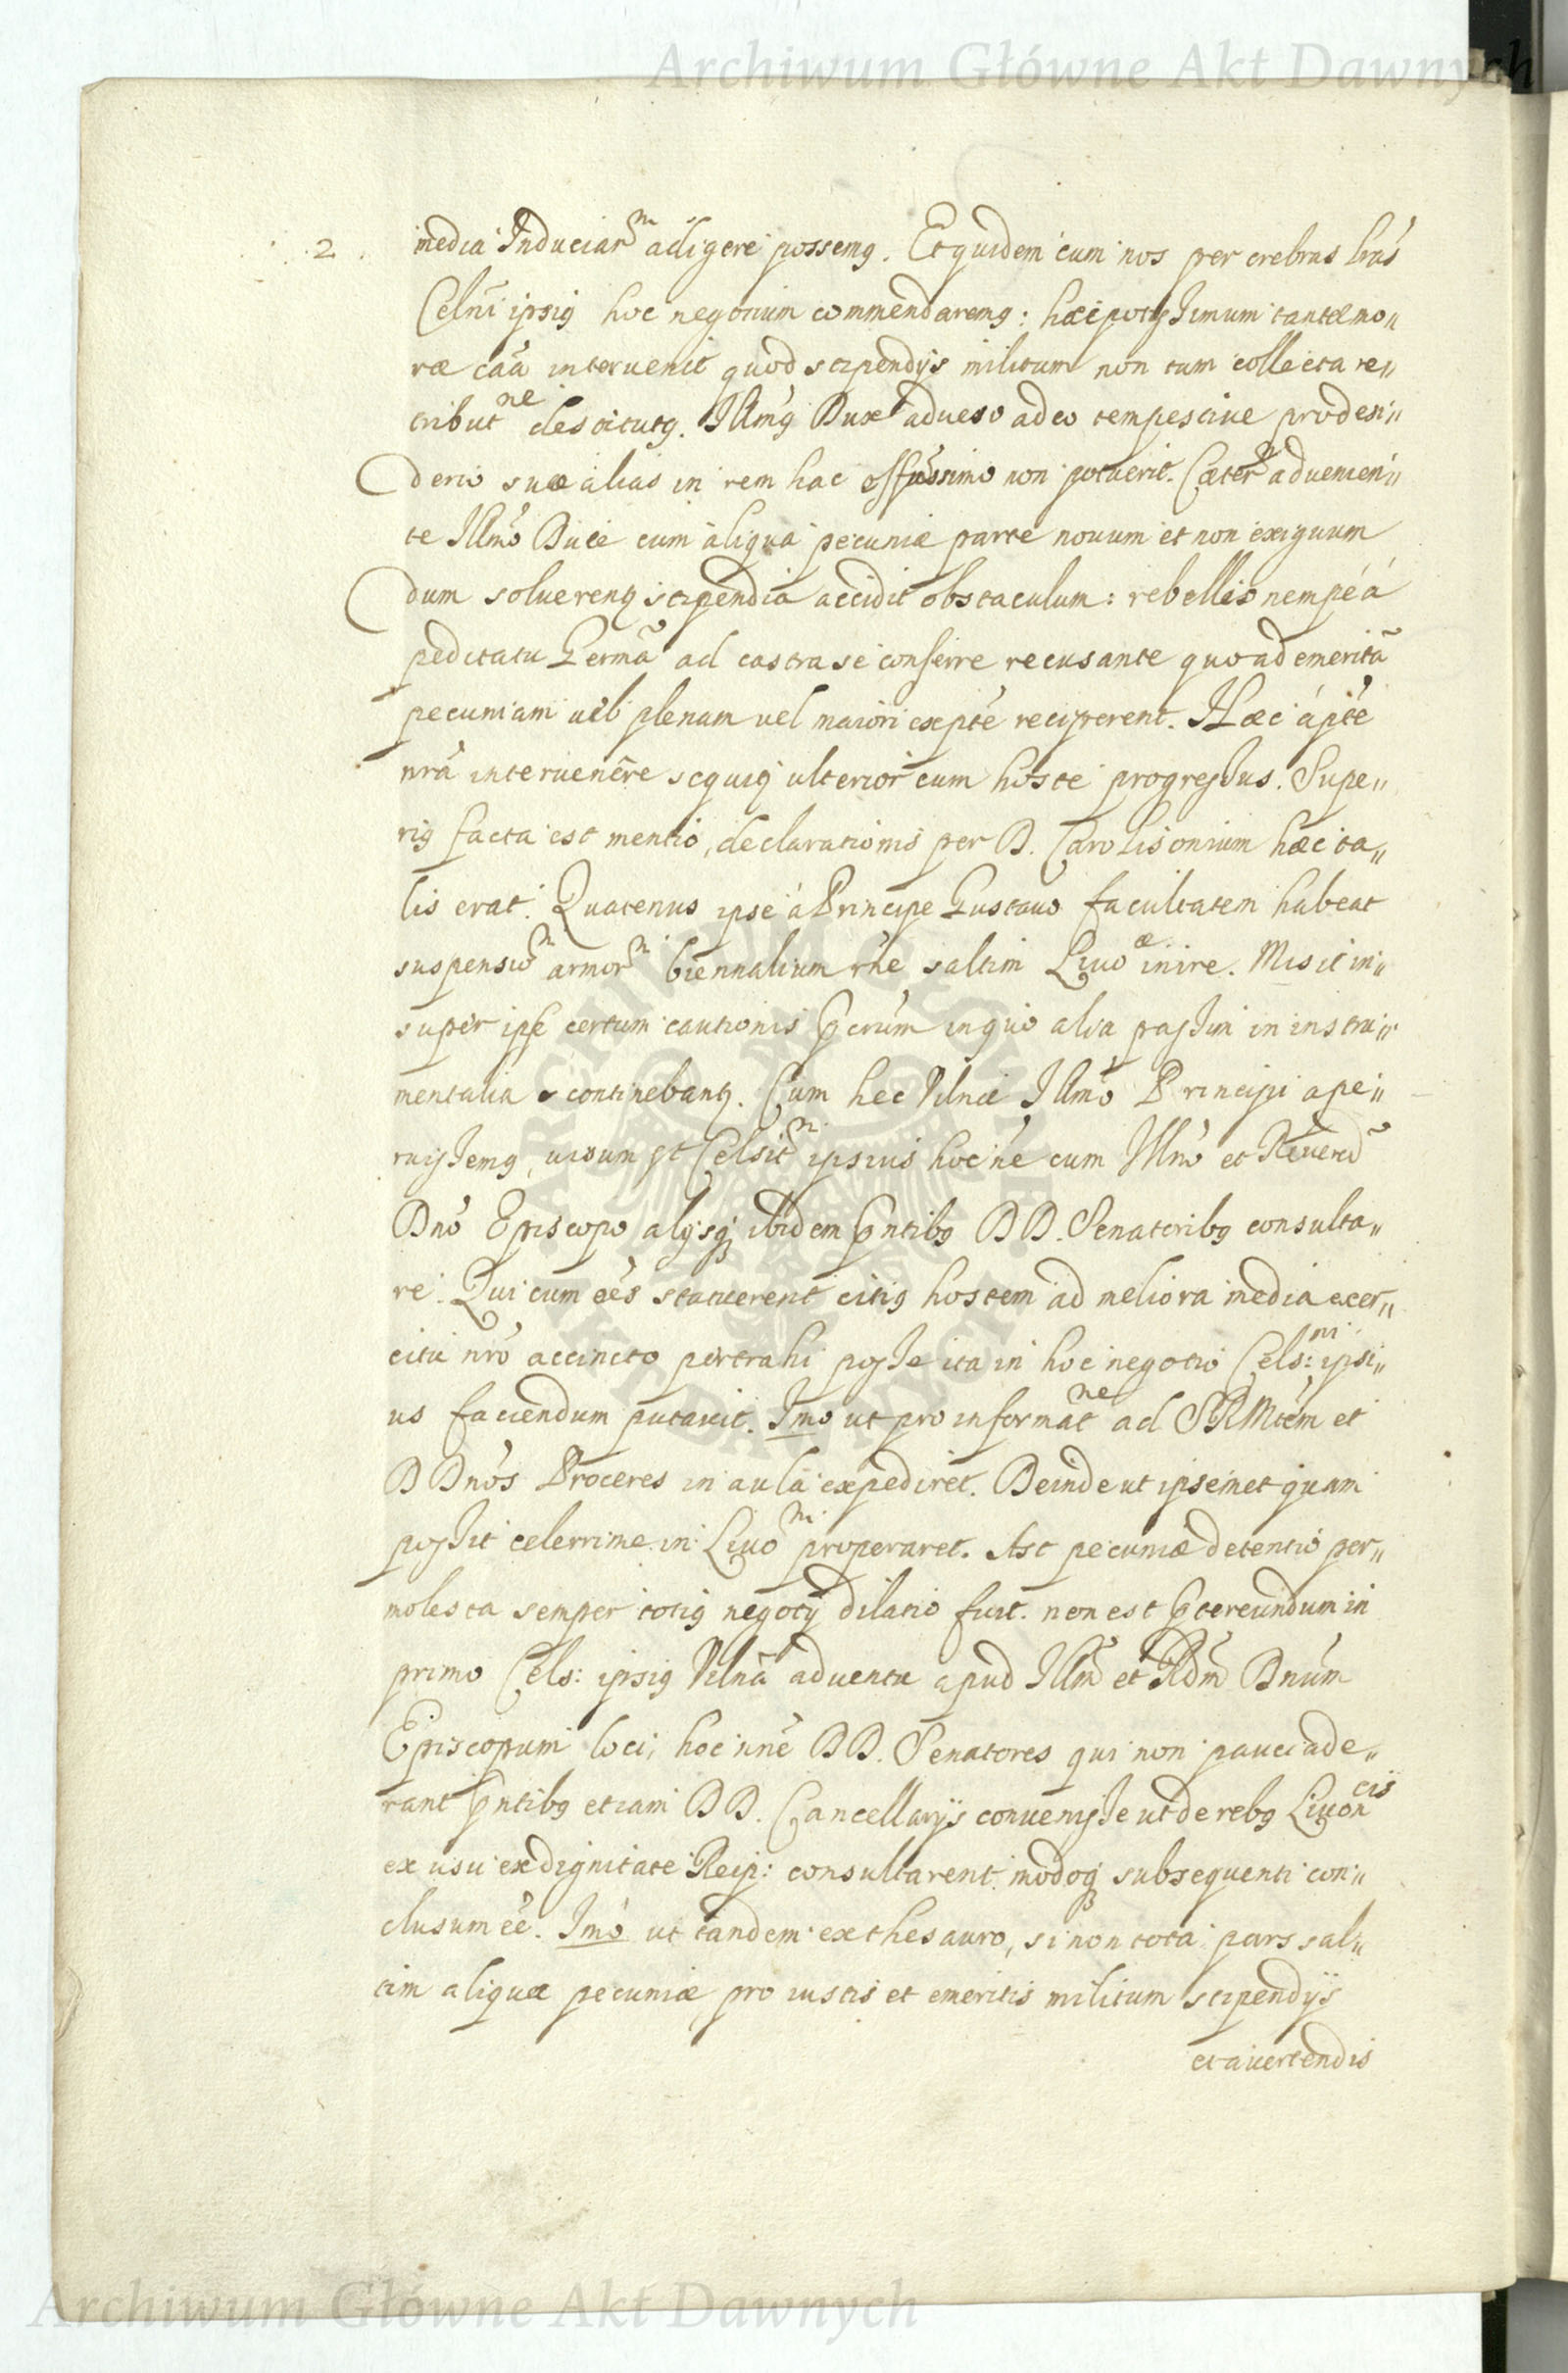 Archiwum Główne Akt Dawnych
2
media Induciarᵐ adigere possemꝰ. Et quidem cum nos per crebras lras
Celni ipsiꝰ hoc negotium commendaremꝰ: hæc potissimum tantæ mo„
ræ caã interuenit quod stipendijs militum non tum collecta re„
tributⁿᵉ destitutꝰ. Illmꝰ Dux adueso adeo tempestiue pro desi„
derio suæ alias in rem hac offissimo non potuerit. Cæter aduenien„
te Illmo Duce cum aliqua pecuniæ parte nouum et non exiguum
dum soluerentꝰ stipendia accidit obstaculum: rebellio nempé á
peditatu Germã ad castra se conferre recusante quoad emeritã
pecuniam uel plenam uel maiori ex pte reciperent. Hæc á pte
nrã interuenere sequiꝰ ulterior cum hoste progressus. Supe„
riꝰ facta est mentio, declarationis per D. Carolisonium hæc ta„
lis erat. Quatenus ipse á Principe Gustauo facultatem habeat
suspensioᵐ armorᵐ biennalium rñe saltim Liuoᵆ inire. Misit in„
super ipse certum cautionis scrum in quo alia passim in instru„
mentalia continebantꝰ. Cum hec Vilnæ Illmo Principi ape„
ruissemꝰ, uisum est Celsitᵐ ipsius hoc ne cum Illmo et Reuerd
Dno Episcopo alijsqꝫ ibidem pntibꝰ DD. Senatoribꝰ consulta„
re. Qui cum ões statuerent citiꝰ hostem ad meliora media exer„
citu nro accincto pertrahi posse ita in hoc negotio Cels:ⁿⁱ ipsi„
us faciendum putauit. Imo ut pro informatⁿᵉ ad SRMtem et
DDnos Proceres in aula expediret. Deinde ut ipsemet quam
possit celerrime in Liuoᵐ properaret. Ast pecuniæ detentio per„
molesta semper totiꝰ negotij dilatio fuit. non est ptereundum in
primo Cels: ipsiꝰ Vilnã aduentu apud Illm et Rdm Dnum
Episcopum loci, hoc nne DD. Senatores qui non pauci ade„
rant pntibꝰ etiam DD. Cancellarijs conuenisse ut de rebꝰ Liuonᶜⁱˢ
ex usu ex dignitate Reip: consultarent. modoqꝫ subsequenti con„
clusum ee. Imo ut tandem ex thesauro, si non tota pars sal„
tim aliqua pecuniæ pro iustis et emeritis militum stipendijs
et auertendis
Archiwum Główne Akt Dawnych